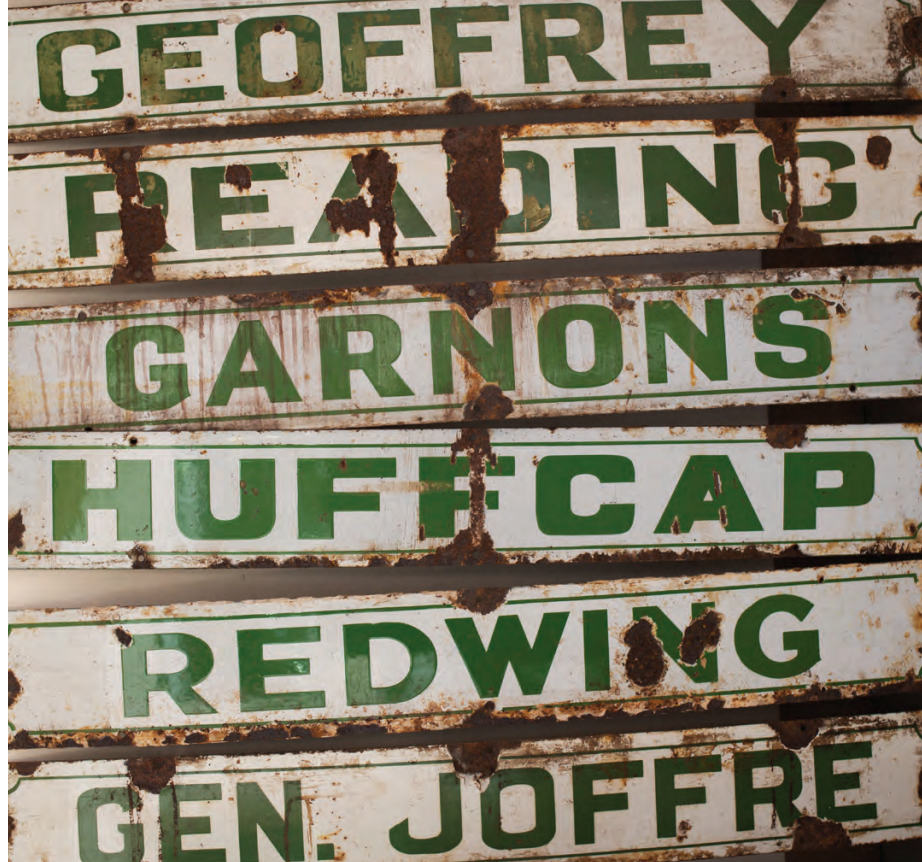 GEOFFREY
READING
GARNONS
HUFFCAP
REDWING
GEN. JOFFRE